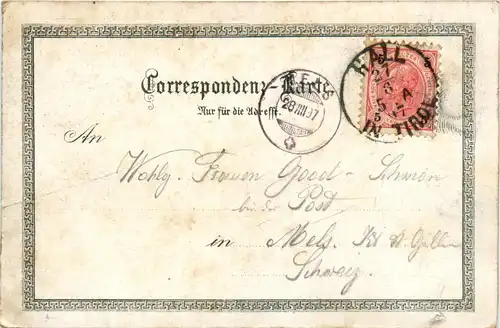 Correspondenz-Karte
Nur für die Adresse.
HALL
IN TIROL
27
8
5-A
5
MELS
28 VIII 97
An
Wohlg. Frauen Good-
bei der Post
in Mels. Kt St. Gallen
Schweiz.